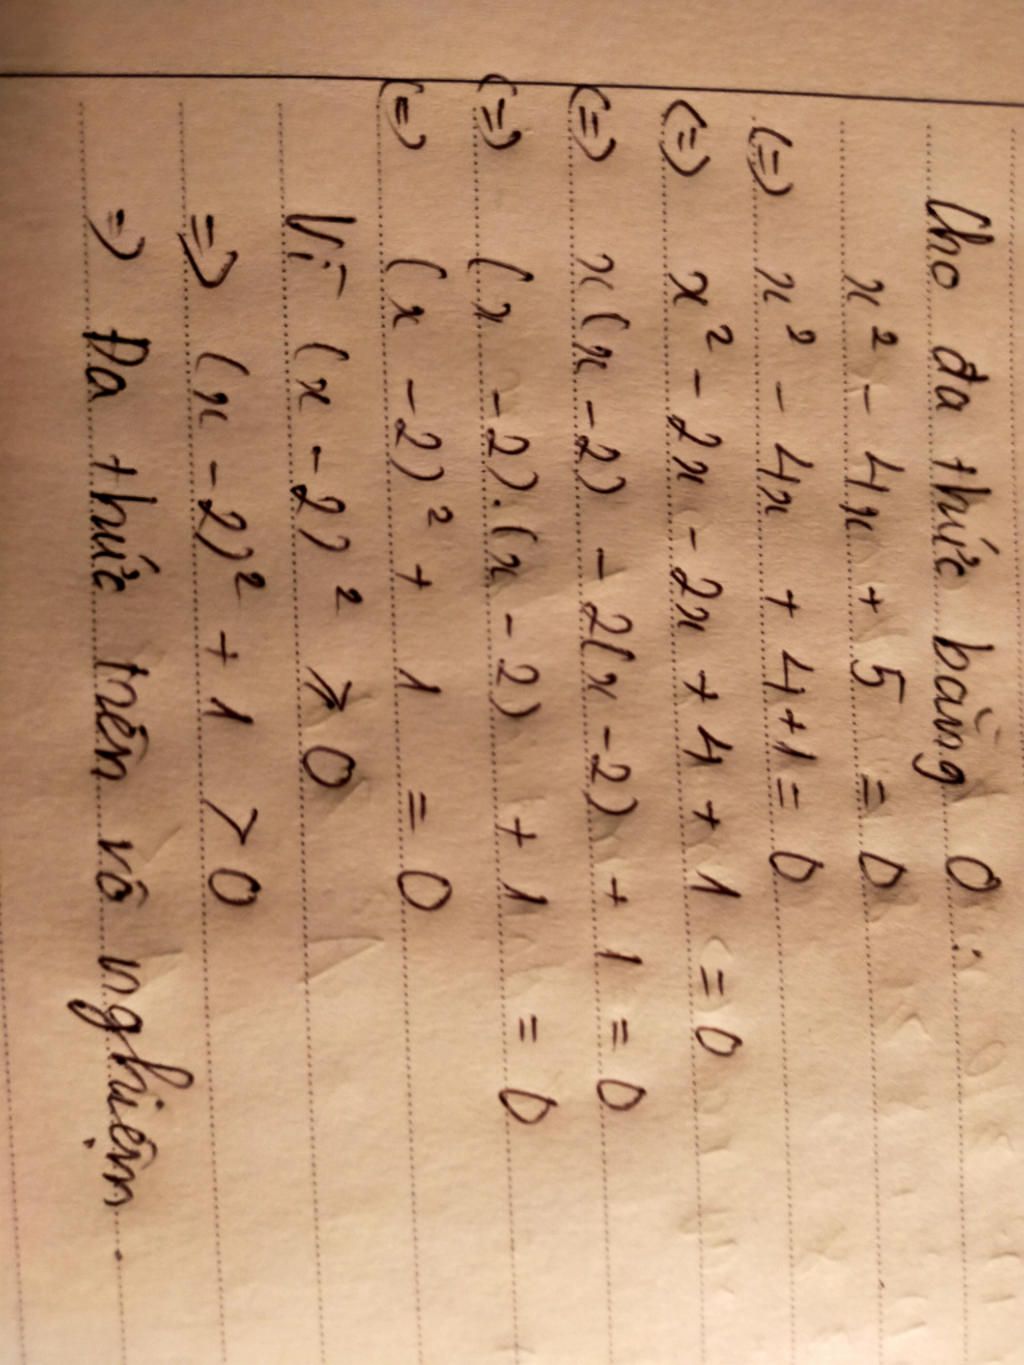 Cho đa thức bằng 0 :
x² - 4x + 5 = 0
(=) x² - 4x + 4+1 = 0
(=) x² - 2x - 2x + 4 + 1 = 0
(=) x(x - 2) - 2(x - 2) + 1 = 0
(=) (x - 2).(x - 2) + 1 = 0
(=) (x - 2)² + 1 = 0
Vì (x - 2)² ⩾ 0
=) (x - 2)² + 1 > 0
=) Đa thức trên vô nghiệm.